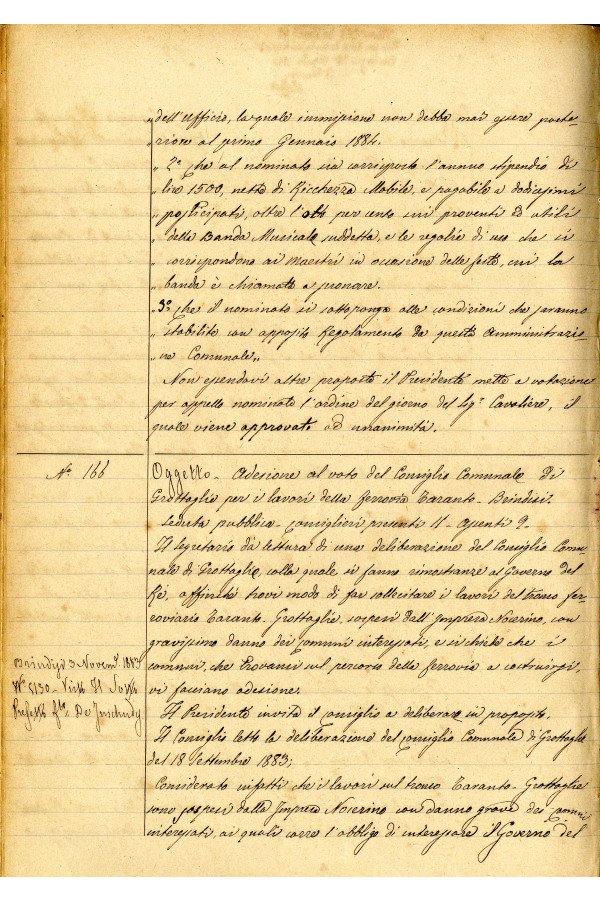 „ dell'Ufficio, la quale immissione non debba mai essere poste-
„ riore al primo Gennaio 1884.
„ 2° Che al nominato sia corrisposto l'annuo stipendio di
„ lire 1500, netto di Ricchezza Mobile, e pagabile a dodicesimi
„ posticipati, oltre l'otto per cento sui proventi ed utili
„ della Banda Musicale suddetta, e le regalie di uso che si
„ corrispondono ai Maestri in occasione delle feste, cui la
„ banda è chiamata a suonare.
„ 3° Che il nominato si sottoponga alle condizioni che saranno
„ stabilite con apposito Regolamento da questa Amministrazio-
„ ne Comunale„
Non essendovi altre proposte il Presidente mette a votazione
per appello nominale l'ordine del giorno del Sig.r Cavaliere, il
quale viene approvato ad unanimità.
N° 166
Oggetto - Adesione al voto del Consiglio Comunale di
Grottaglie per i lavori della ferrovia Taranto - Brindisi.
Seduta pubblica - Consiglieri presenti 11 - Assenti 9 -
Il Segretario dà lettura di una deliberazione del Consiglio Comu-
nale di Grottaglie, colla quale si fanno rimostranze al Governo del
Rè, affinchè trovi modo di far sollecitare i lavori del tronco fer-
roviario Taranto - Grottaglie, sospesi dall'Impresa Nocerino, con
gravissimo danno dei Comuni interessati, e si chiede che i
comuni, che trovansi sul percorso della ferrovia a costruirsi,
vi facciano adesione.
Brindisi 3 Novem. 1883
N° 5130 - Visto Il Sotto
Prefetto f.to De
Il Presidente invita il Consiglio a deliberare in proposito.
Il Consiglio letta la deliberazione del Consiglio Comunale di Grottaglie
del 18 Settembre 1883;
Considerato infatti che i lavori sul tronco Taranto - Grottaglie
sono sospesi dalla Impresa Nocerino con danno grave dei Comuni
interessati, ai quali corre l'obbligo di interessare il Governo del